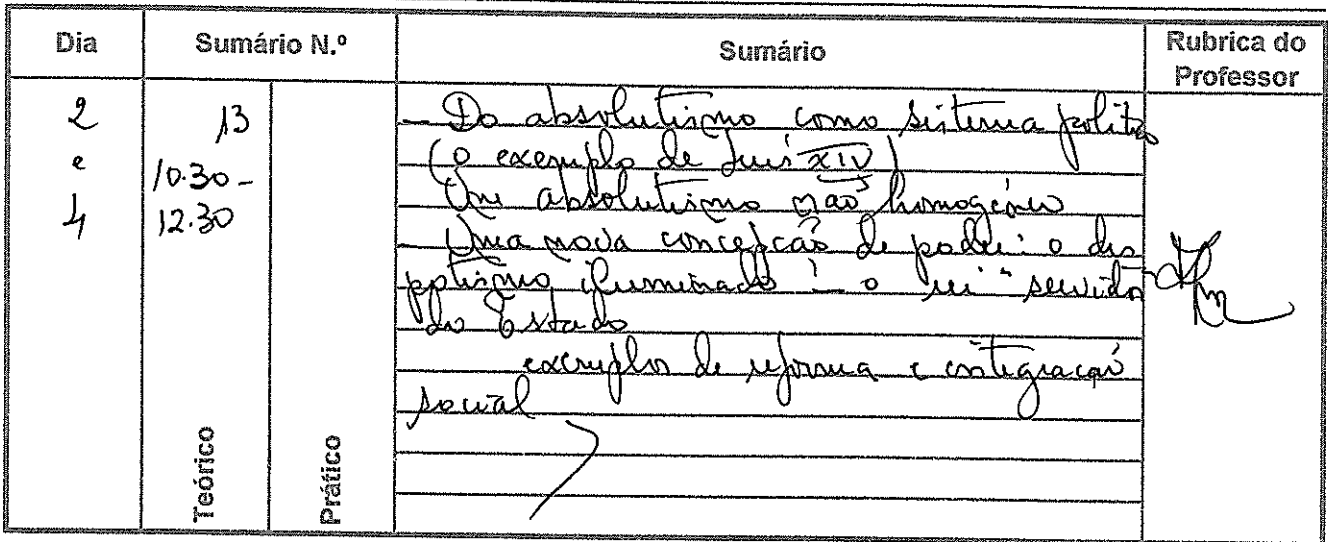 Dia Sumário N.º Sumário Rubrica do Professor
2 e 4
13
10.30 -
12.30
Teórico
Prático
- Do absolutismo como sistema político
(o exemplo de Luís XIV)
Um absolutismo não homogéneo
- Uma nova concepção de poder: o des
potismo iluminado - o rei "servidor
do Estado
exemplos de reforma e integração
social